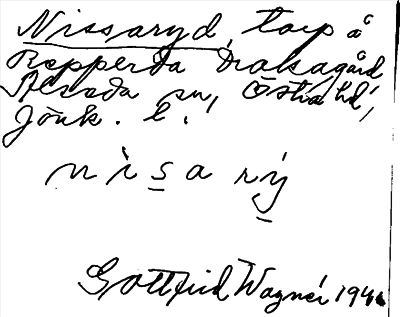 Nissaryd, torp å
Repperda Draksagård
Alseda sn, Östra hd,
Jönk. l.
n i s a r ý
Gottfrid Wagnér 194